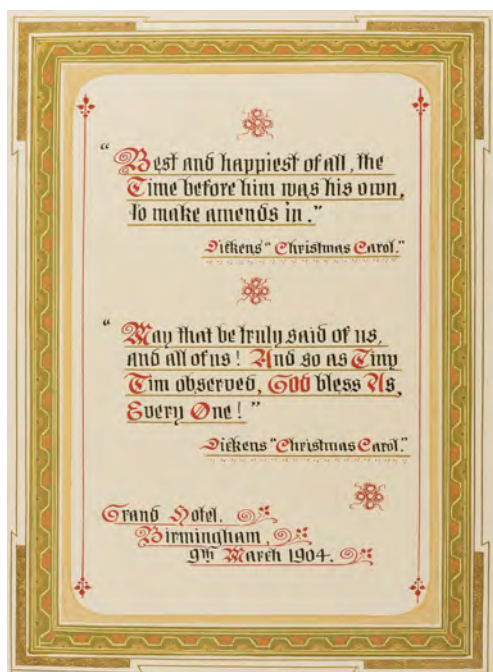 “Best and happiest of all, the
Time before him was his own,
to make amends in.”
Dickens “Christmas Carol.”
“May that be truly said of us,
and all of us! And so as Tiny
Tim observed, God bless Us,
Every One!”
Dickens “Christmas Carol.”
Grand Hotel.
Birmingham,
9th March 1904.